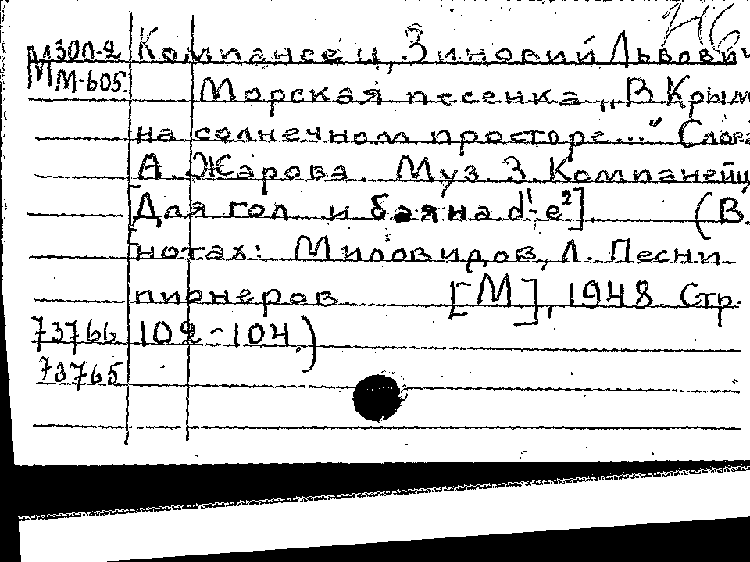 М300-2 Компанеец, Зиновий Львович
ММ-605 Морская песенка „В Крым
на солнечном просторе..." Слова
А. Жарова. Муз. З. Компанейц
[Для гол. и баяна d¹-e²]. (В.
нотах: Миловидов, Л. Песни
пионеров [М], 1948 Стр.
73766 102-104.)
73765